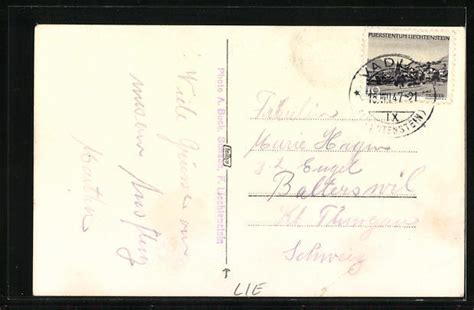 Viele Grüsse von
unserem Ausflug
Photo A. Buck, Schaan, F. Liechtenstein
FUERSTENTUM LIECHTENSTEIN
VADUZ
IX
(LIECHTENSTEIN)
Fräulein
Marie Hagen
z. Engel
Balterswil
Kt. Thurgau
Schweiz
LIE